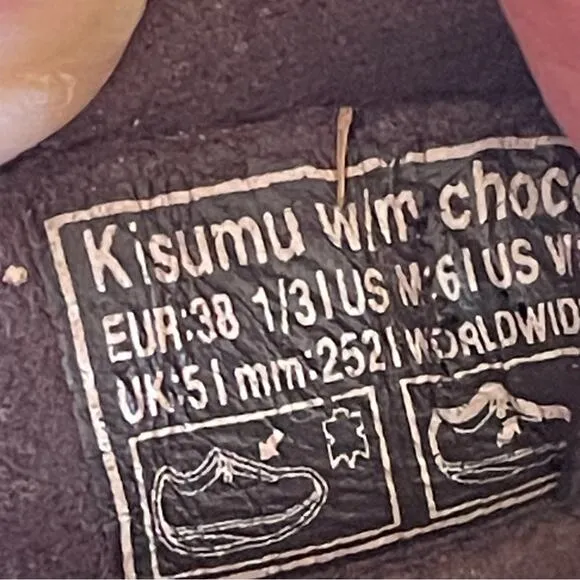 Kisumu w/m choc
EUR:38 1/3 | US M:6 | US W
UK:5 | mm:252 | WORLDWID